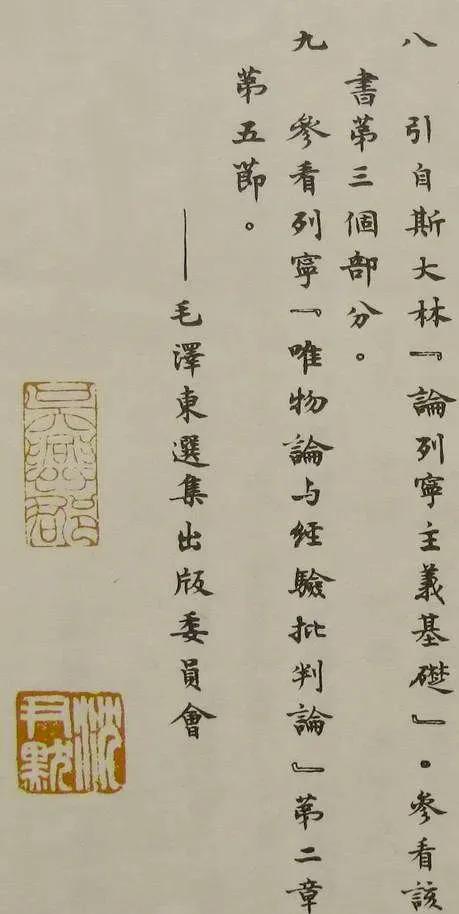 八　引自斯大林『論列寧主義基礎』。參看該
書第三個部分。
九　參看列寧『唯物論与經驗批判論』第二章
第五節。
——毛澤東選集出版委員會
沈尹默